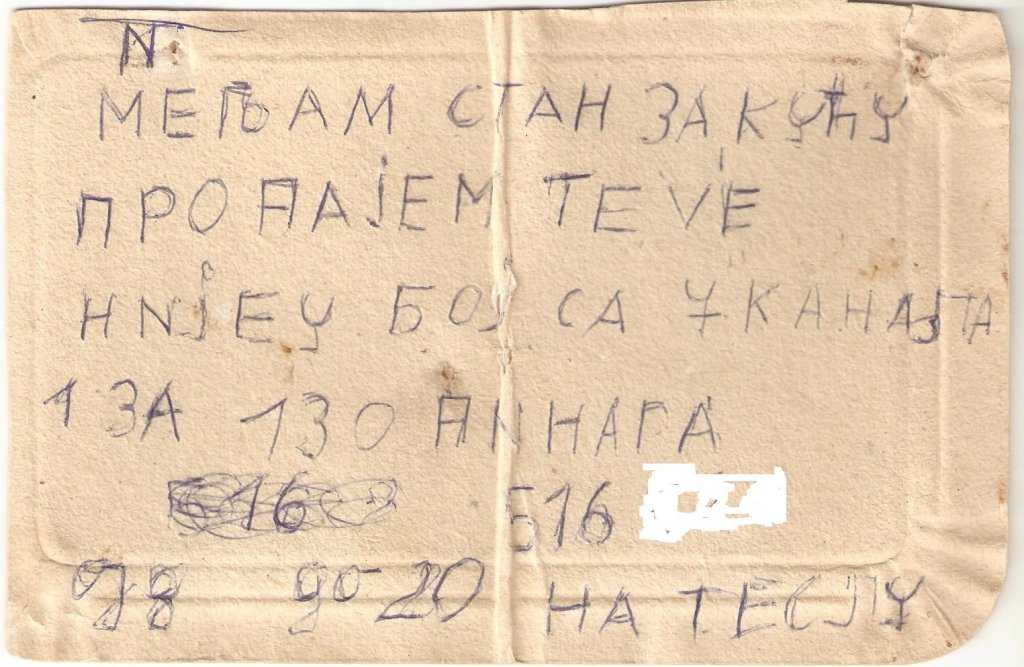 МЕЊАМ СТАН ЗА КУЋУ
ПРОДАЈЕМ ТЕVЕ
НИЈЕ У БОЈ СА 7
1 ЗА 130 ДИНАРА
516
од 8 до 20 НА ТЕСЛУ